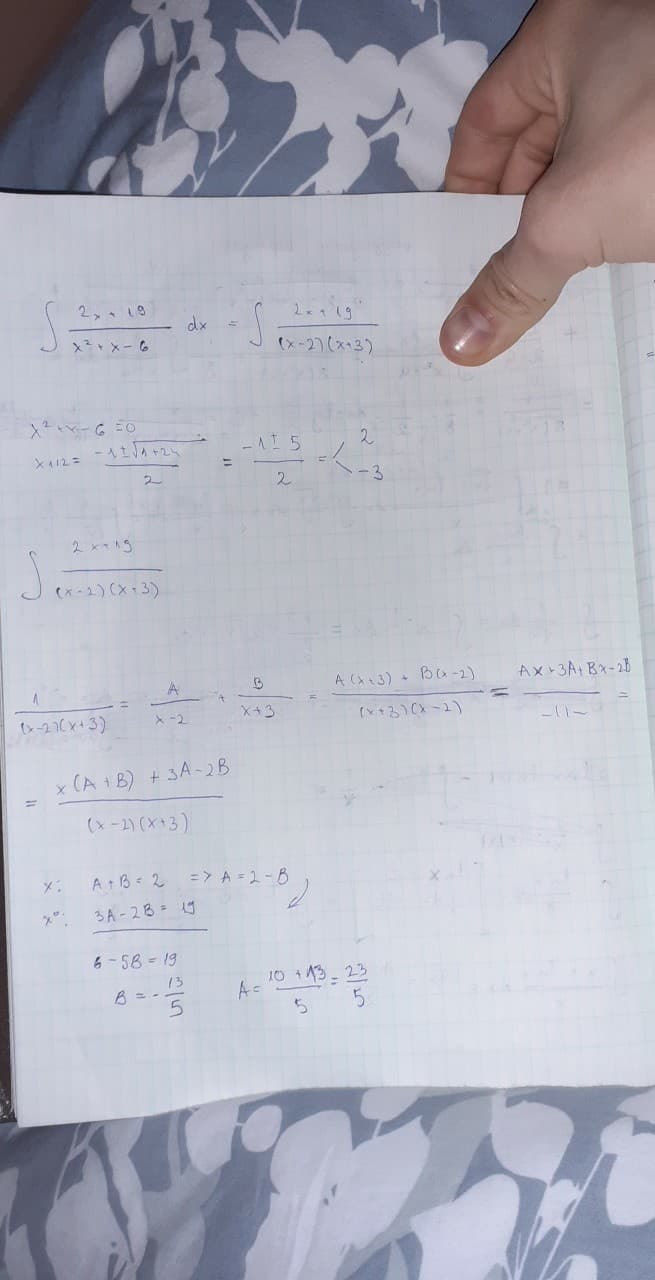 ∫ (2x + 19)/(x² + x - 6) dx = ∫ (2x + 19)/((x-2)(x+3))
x² + x - 6 = 0
x₁,₁₂ = (-1 ± √(1+24))/2 = (-1 ± 5)/2 = < 2
-3
∫ (2x + 19)/((x-2)(x+3))
1/((x-2)(x+3)) = A/(x-2) + B/(x+3) = (A(x+3) + B(x-2))/((x+3)(x-2)) = (Ax + 3A + Bx - 2B)/(-11-) =
= (x(A+B) + 3A - 2B)/((x-2)(x+3))
x: A + B = 2 => A = 2 - B
x⁰: 3A - 2B = 19
6 - 5B = 19
B = -13/5 A = (10 + 13)/5 = 23/5